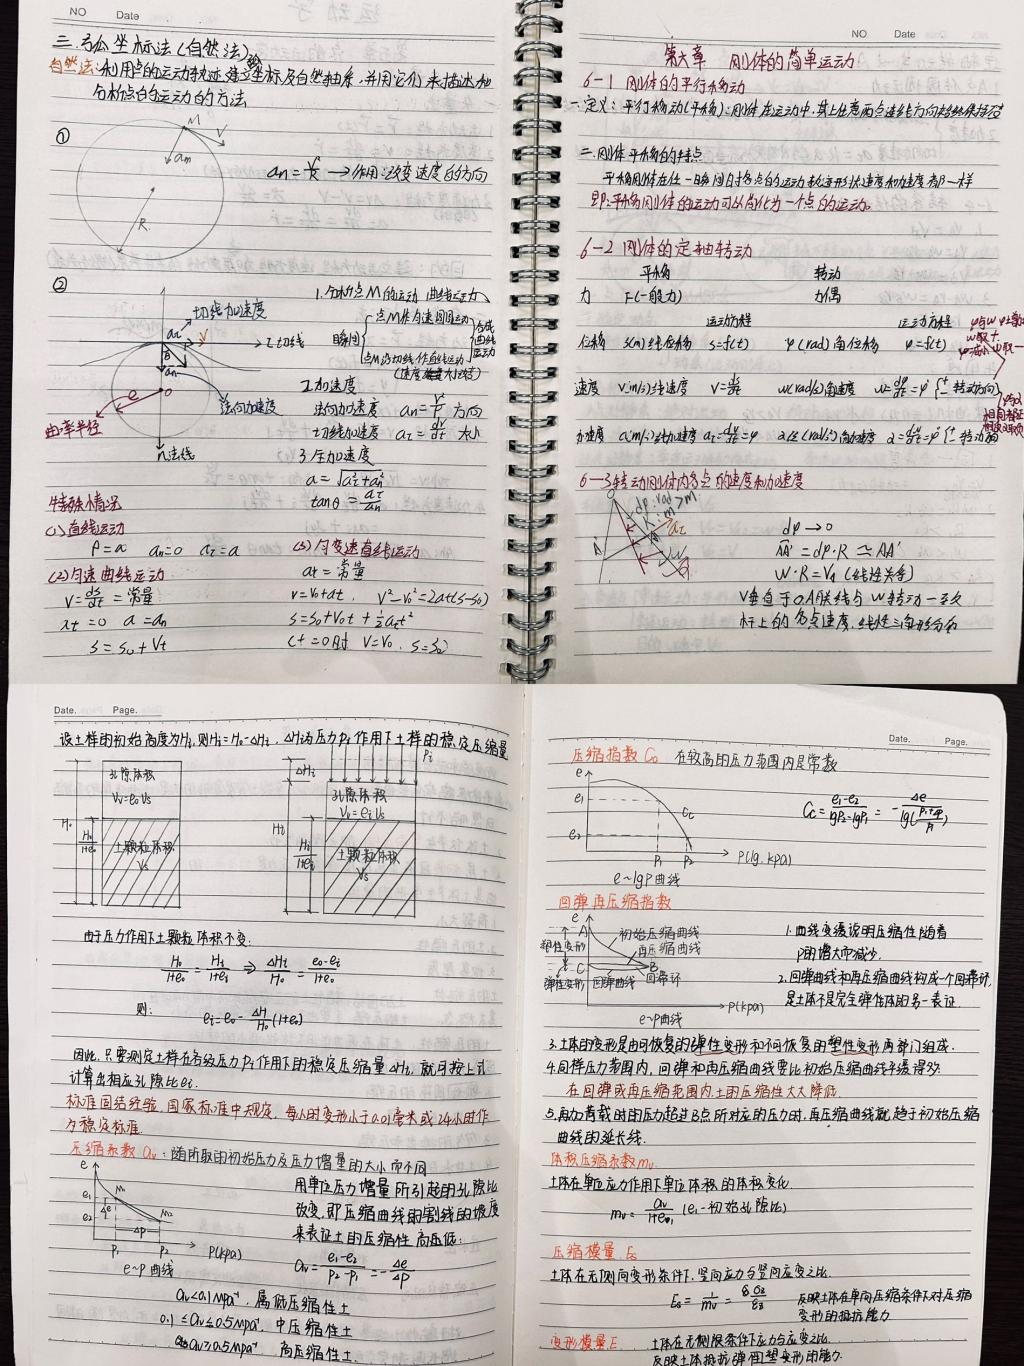 NO Date
三.弧坐标法(自然法)
自然法:利用点的运动轨迹建立坐标及自然轴系,并用它们来描述和
分析点的运动的方法
①
M
V
an
R
an=V²/R →作用:改变速度的方向
②
切线加速度
τ切线
法向加速度
曲率半径
n法线
1.分析点M的运动 曲线运动
瞬间
点M作匀速圆周运动
点M沿切线作直线运动
合成曲线运动
2.加速度
法向加速度 an=V²/ρ 方向
切线加速度 aτ=dv/dt 大小
3.全加速度
a=√(aτ²+an²)
tanθ=aτ/an
特殊情况
(1)直线运动
ρ=∞ an=0 aτ=a
(2)匀速曲线运动
V=ds/dt=常量
aτ=0 a=an
s=s₀+Vt
(3)匀变速直线运动
at=常量
v=v₀+at, v²-v₀²=2at(s-s₀)
s=s₀+v₀t+½aτt²
(t=0时 V=V₀, s=s₀)
NO Date
第六章 刚体的简单运动
6-1 刚体的平行移动
一.定义:平行移动(平移):刚体在运动中,其上任意两点连线方向始终保持不变
二.刚体平移的特点
平移刚体在任一瞬间时各点的运动轨迹形状速度和加速度都一样
即:平移刚体的运动可以简化为一个点的运动。
6-2 刚体的定轴转动
平移 转动
力 F(一般力) 力偶
运动方程 运动方程
位移 s(m)线位移 s=f(t) φ(rad)角位移 φ=f(t)
速度 V(m/s)线速度 V=ds/dt ω(rad/s)角速度 ω=dφ/dt=φ' {+ - 转动方向
6-3转动刚体内各点的速度和加速度
dφ→0
AA'=dφ·R≃AA'
W·R=VA (线性关系)
V垂直于OA联线与W转动一至
杆上的各点速度,线性三角形分布
Date. Page.
设土样的初始高度为H₀,则Hi=H₀-ΔHi,ΔHi为压力Pi作用下土样的稳定压缩量
孔隙体积
Vv=e₀Vs
土颗粒体积
Vs
H₀
H₀/1+e₀
ΔHi
Pi
孔隙体积
Vv=eiVs
土颗粒体积
Vs
Hi
Hi/1+ei
由于压力作用下土颗粒体积不变:
H₀/1+e₀=Hi/1+ei ⇒ ΔHi/H₀=e₀-ei/1+e₀
则: ei=e₀-ΔH/H₀(1+e₀)
因此,只要测定土样在各级压力Pi作用下的稳定压缩量ΔHi,就可按上式
计算出相应孔隙比ei.
标准固结经验,国家标准中规定,每小时变形小于0.01毫米或24小时作
为稳定标准.
压缩系数av:随所取的初始压力及压力增量的大小而不同
用单位压力增量所引起的孔隙比
改变,即压缩曲线的割线的坡度
来表证土的压缩性高压低:
av=e₁-e₂/P₂-P₁=-Δe/ΔP
e
e₁
e₂
Δe
M₁
M₂
ΔP
P₁ P₂ P(kpa)
e~p曲线
av<0.1Mpa⁻¹,属低压缩性土
0.1≤av≤0.5Mpa⁻¹,中压缩性土
av>0.5Mpa⁻¹ 高压缩性土.
Date. Page.
压缩指数Cc 在较高的压力范围内是常数
Cc=e₁-e₂/lgP₂-lgP₁=-Δe/lg(P₁+ΔP/P₁)
e
e₁
e₂
Cc
P₁ P₂ P(lg.kpa)
e~lgP曲线
回弹再压缩指数
e
A
初始压缩曲线
再压缩曲线
塑性变形
C
B
弹性变形
回弹曲线
回滞环
P(kpa)
e~p曲线
1.曲线变缓说明压缩性随着
P的增大而减少.
2.回弹曲线和再压缩曲线构成一个回滞环,
是土体不是完全弹性体的另一表证
3.土体的变形是由可恢复的弹性变形和不可恢复的塑性变形两部门组成.
4.同样压力范围内,回弹和再压缩曲线要比初始压缩曲线平缓得多
在回弹或再压缩范围内,土的压缩性大大降低.
5.再加荷载时的压力超过B点所对应的压力时,再压缩曲线就趋于初始压缩
曲线的延长线.
体积压缩系数mv.
土体在单位应力作用下单位体积的体积变化
mv=av/1+e₁ (e₁-初始孔隙比)
压缩模量.Es
土体在无侧向变形条件下,竖向应力与竖向应变之比.
Es=1/mv=
反映土体在单向压缩条件下对压缩
变形的抵抗能力
变形模量E. 土体在无侧限条件下应力与应变之比.
反映土体抵抗弹塑变形的能力.